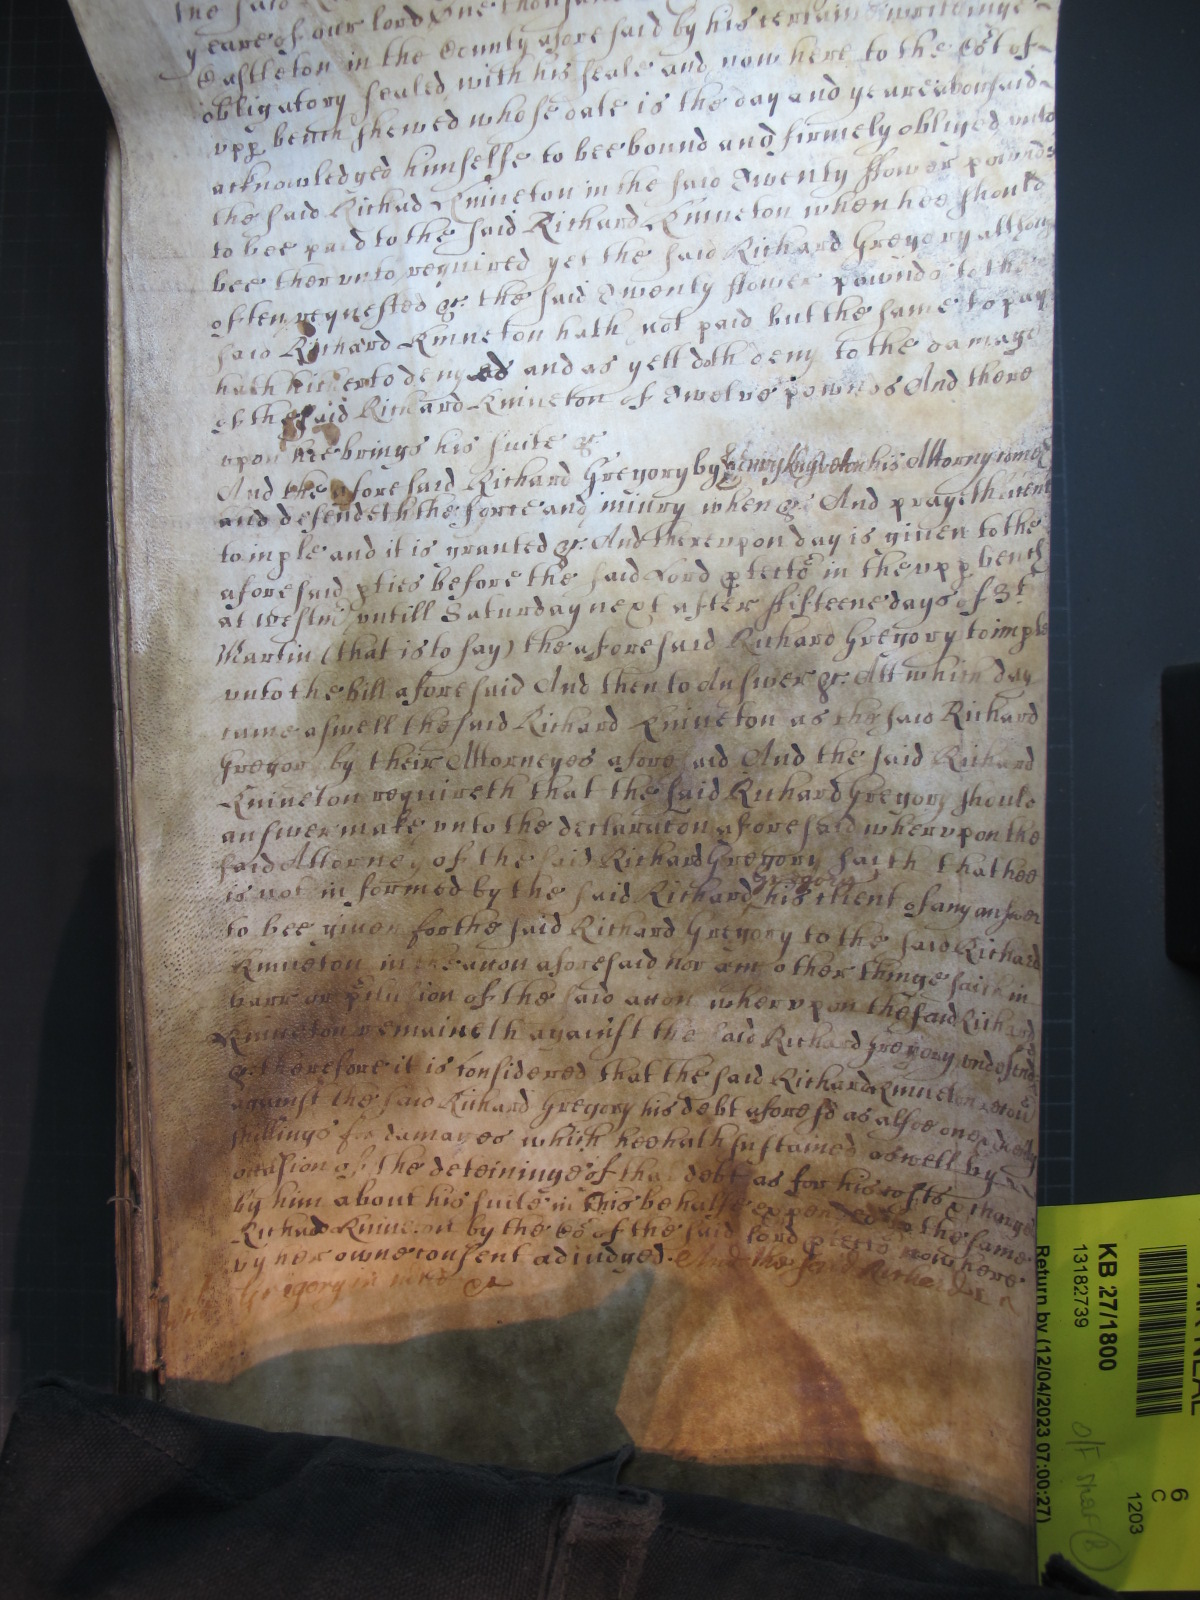 the said
yeare of our lord One thousand
Castleton in the County aforesaid by his certaine writinge
obligatory sealed with his seale and now here to the Cot of
vpp bench shewed whose date is the day and yeare abovesaid
acknowledged himselfe to bee bound and firmely obliged vnto
the said Richard Kniueton in the said Twenty ffower pounds
to bee paid to the said Richard Kniueton when hee should
bee thervnto required yet the said Richard Gregory althoug
often requested &c. the said Twenty ffower pounds to the
said Richard Kniueton hath not paid but the same to pay
hath hitherto denyed and as yett doth deny to the damage
of the said Richard Kniueton of Twelve pounds And there
vpon hee brings his suite &c
And the aforesaid Richard Gregory by his Attorny comes
and defendeth the force and iniury when &c. And prayeth
to imple and it is granted &c. And therevpon day is giuen to the
aforesaid pties before the said Lord ptecto in the vpp bench
at westm vntill Saturday next after ffifteene days of St
Martin (that is to say) the aforesaid Richard Gregory to imple
vnto the bill aforesaid And then to Answer &c. Att which day
came aswell the said Richard Kniueton as the said Richard
Gregory by their Attorneyes aforesaid And the said Richard
Kniueton requireth that the said Richard Gregory should
answer make vnto the declaracon aforesaid wherevpon the
said Attorney of the said Richard Gregory saith that hee
is not informed by the said Richard Gregory his Client of any answer
to bee giuen for the said Richard Gregory to the said Richard
Kniueton in the accon aforesaid nor any other thinge saith in
barr or of the said accon wherevpon the said Richard
Kniueton remaineth against the said Richard Gregory vndefend
&c. therefore it is considered that the said Richard Kniueton
against the said Richard Gregory his debt aforesd as alsoe
shillings for damages which hee hath sustained aswell by
occasion of the deteininge of that debt as for his costs & charges
by him about his suite in this behalfe expended to the same
Richard Kniueton by the of the said lord ptecto now here
by her owne consent adiudged. And the said Richard
Gregory in &c

KB 27/1800
13182739
Return by (12/04/2023 07:00:27)
6
C
1203